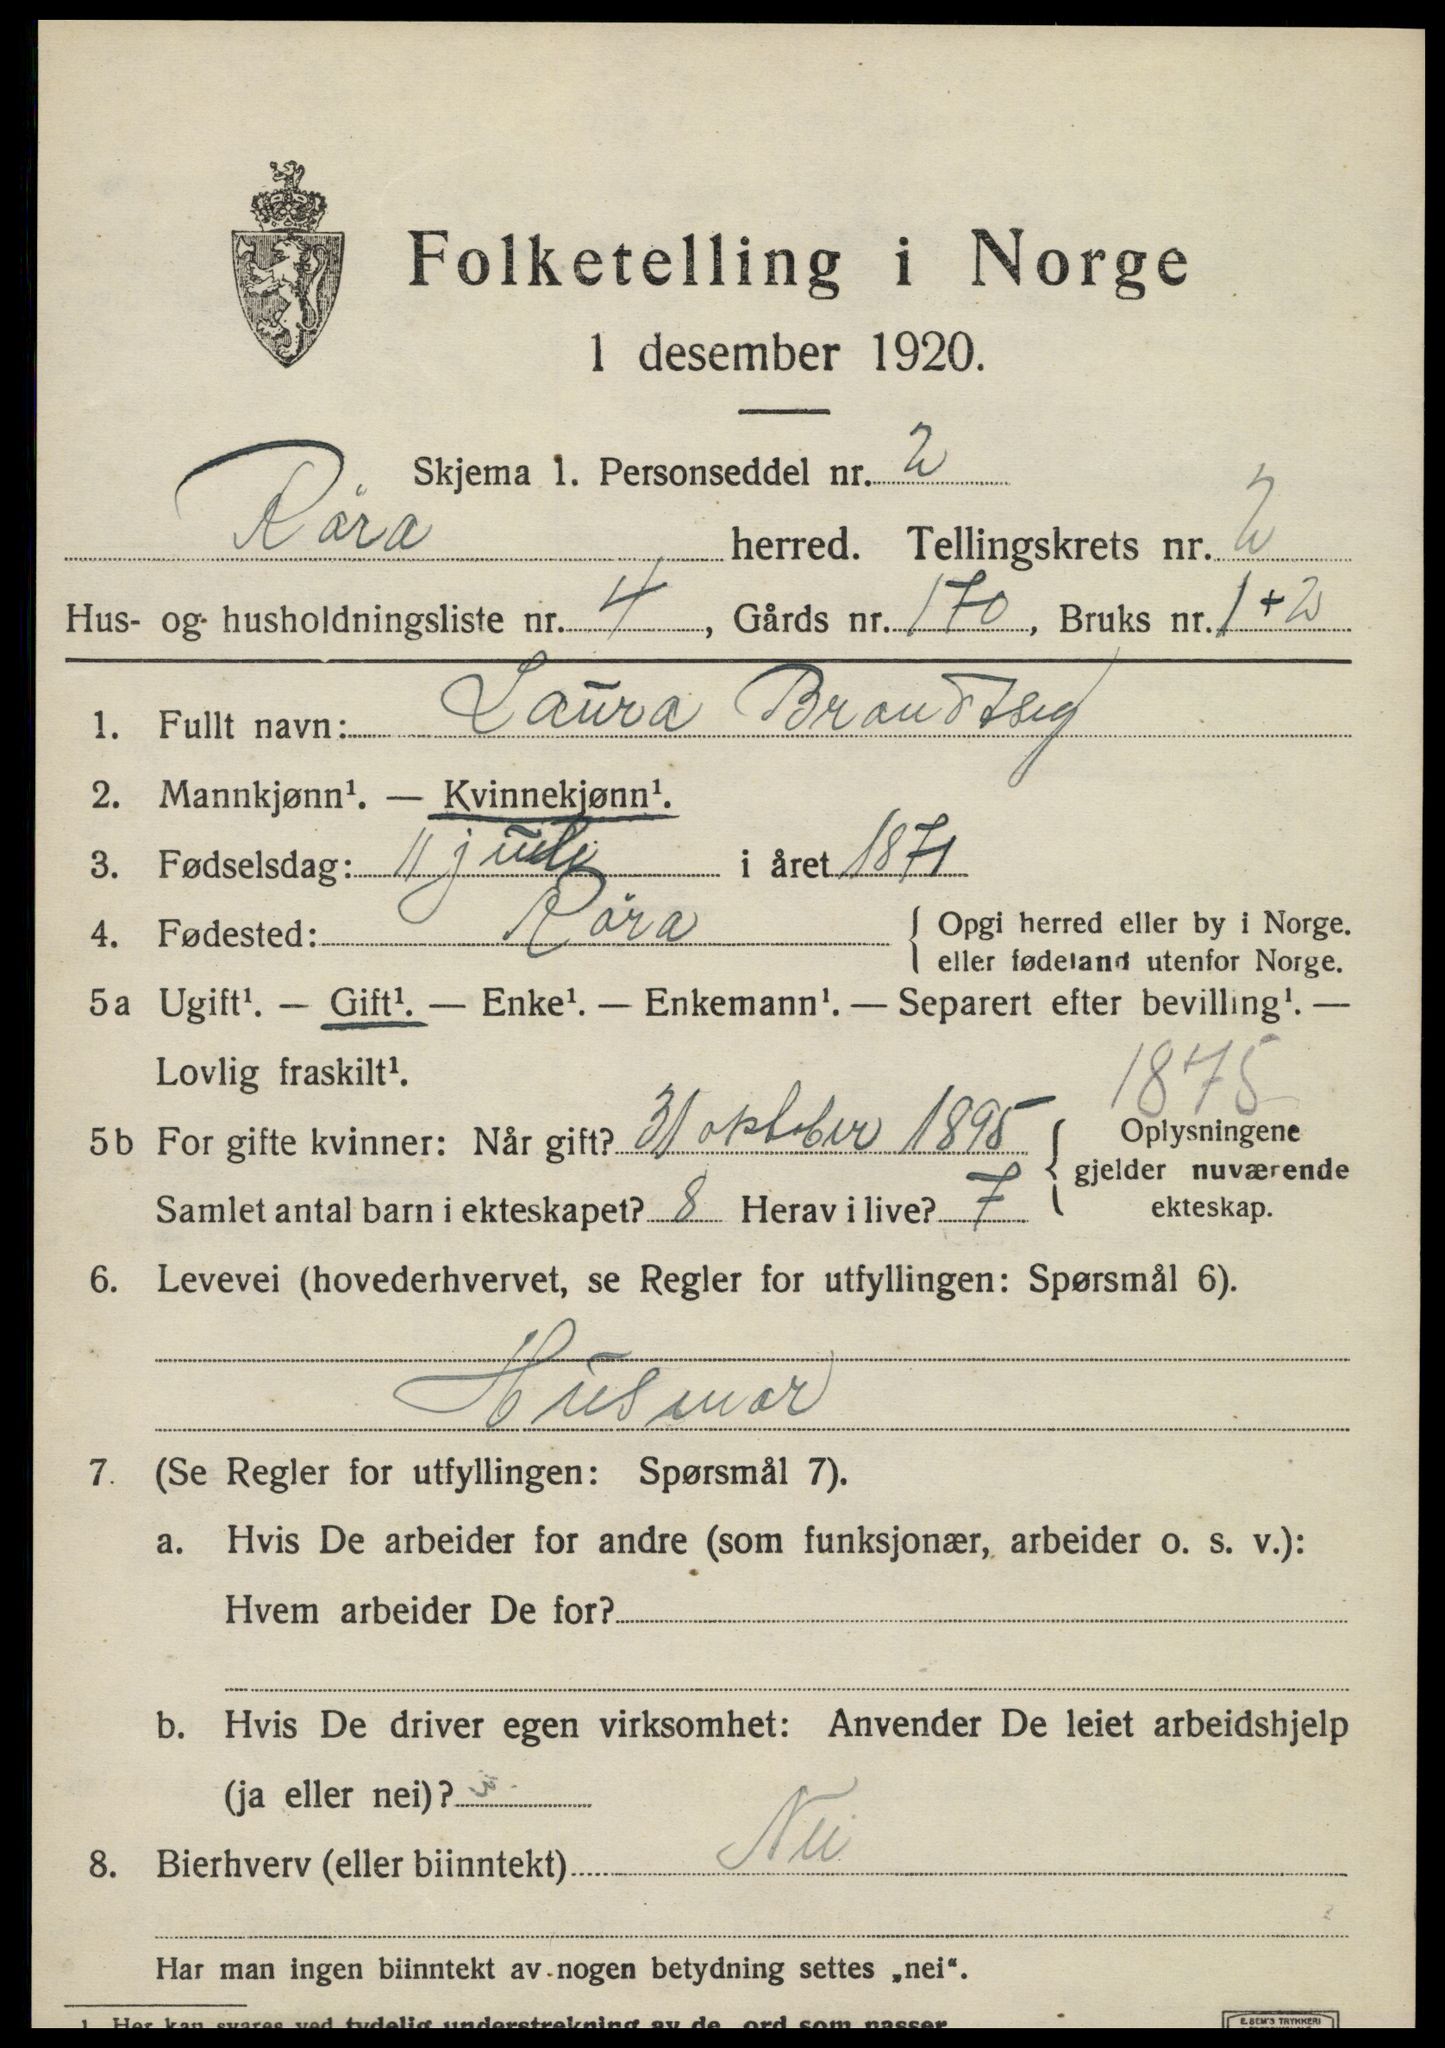 Folketelling i Norge
1 desember 1920.
Skjema 1. Personseddel nr. 2
Röra herred. Tellingskrets nr. 2
Hus- og husholdningsliste nr. 4, Gårds nr. 170, Bruks nr. 1+2
1. Fullt navn: Laura Brandtseg
2. Mannkjønn¹. — Kvinnekjønn¹.
3. Fødselsdag: 11 juli i året 1871
4. Fødested: Röra { Opgi herred eller by i Norge.
eller fødeland utenfor Norge.
5a Ugift¹. — Gift¹. — Enke¹. — Enkemann¹. — Separert efter bevilling¹. —
Lovlig fraskilt¹.
1875
5b For gifte kvinner: Når gift? 31 oktober 1895 { Oplysningene
gjelder nuværende
Samlet antal barn i ekteskapet? 8 Herav i live? 7 ekteskap.
6. Levevei (hovederhvervet, se Regler for utfyllingen: Spørsmål 6).
Husmor
7. (Se Regler for utfyllingen: Spørsmål 7).
a. Hvis De arbeider for andre (som funksjonær, arbeider o. s. v.):
Hvem arbeider De for?
b. Hvis De driver egen virksomhet: Anvender De leiet arbeidshjelp
(ja eller nei)?
8. Bierhverv (eller biinntekt) Nei
Har man ingen biinntekt av nogen betydning settes „nei“.
1. Her kan svares ved tydelig understrekning av de ord som passer
E. SEM'S TRYKKERI